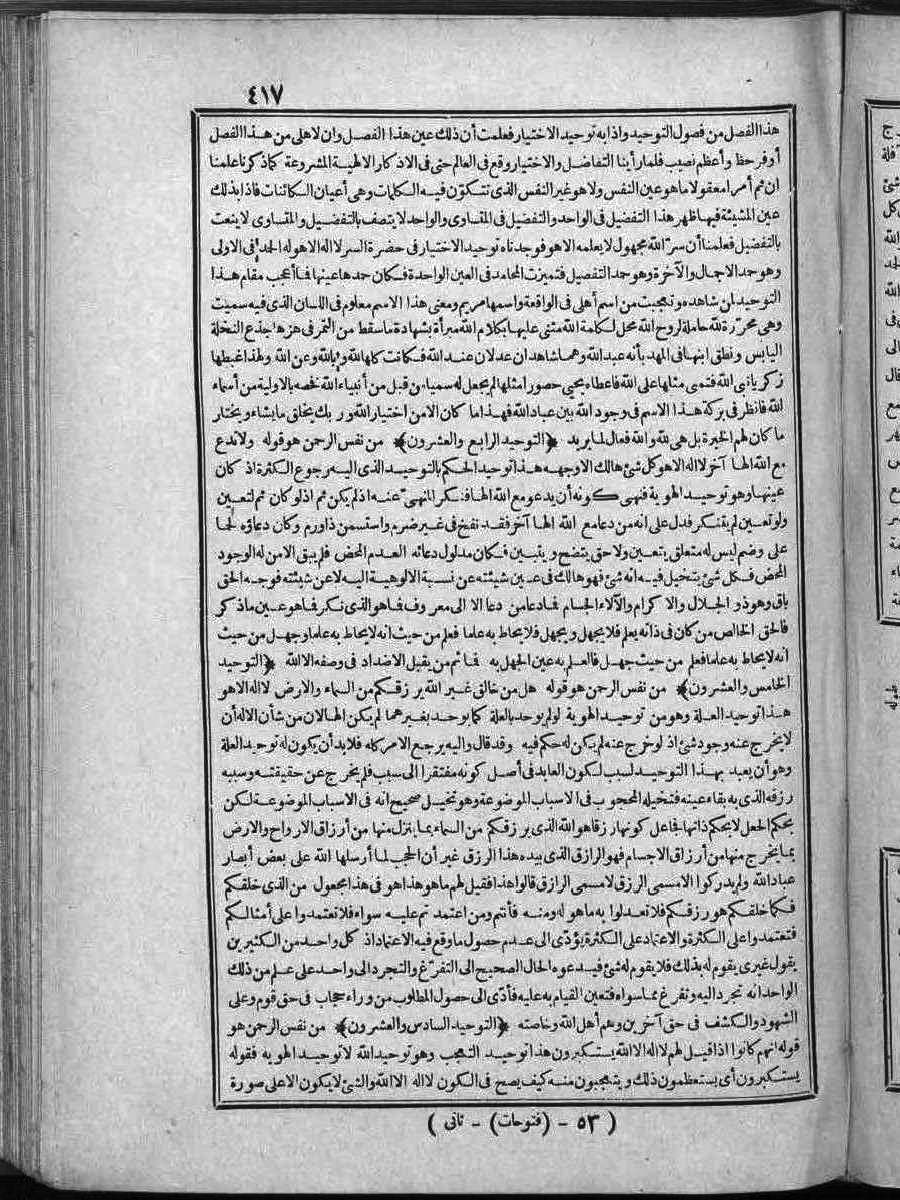 ٤١٧
هذا الفصل من فصول التوحيد واذا به توحيد الاختيار فعلمت أن ذلك عين هذا الفصل وان لاهلى من هذا الفصل
أوفر حظ وأعظم نصيب فلما رأينا التفاضل والاختيار وقع فى العالم حتى فى الاذكار الالهية المشروعة كما ذكرنا علمنا
ان ثم أمرا معقولا ما هو عين النفس ولا هو غير النفس الذى تتكون فيه الكلمات وهى أعيان الكائنات فاذا بذلك
عين المشيئة فيها ظهر هذا التفضيل فى الواحد والتفضيل فى المتساوى والواحد لا يتصف بالتفضيل والمتساوى لا ينعت
بالتفضيل فعلمنا أن سرّ الله مجهول لا يعلمه الا هو فوجدناه توحيد الاختيار فى حضرة السر لا اله الا هو له الحمد فى الاولى
وهو حمد الاجمال والآخرة وهو حمد التفصيل فتميزت المحامد فى العين الواحدة فكان حمدها عينها فما أعجب مقام هذا
التوحيد لمن شاهده وتعجبت من اسم أهلى فى الواقعة واسمها مريم ومعنى هذا الاسم معلوم فى اللسان الذى فيه سميت
وهى محرّرة لله حاملة لروح الله محل لكلمة الله مثنى عليها بكلام الله مبرأة بشهادة ما سقط من التمر فى هزها جذع النخلة
اليابس ونطق ابنها فى المهد بأنه عبد الله وهما شاهدان عدلان عند الله فكانت كلها لله وبالله وعن الله ولهذا غبطها
زكريا نبى الله فتمنى مثلها على الله فاعطاه يحيى حصورا مثلها لم يجعل له سميا من قبل من أنبياء الله فخصه بالاولية من أسماء
الله فانظر فى بركة هذا الاسم فى وجود الله بين عباد الله فهذا ما كان الا من اختيار الله وربك يخلق ما يشاء ويختار
ما كان لهم الخيرة بل هى لله والله فعال لما يريد ﴿التوحيد الرابع والعشرون﴾ من نفس الرحمن هو قوله ولا تدع
مع الله الها آخر لا اله الا هو كل شئ هالك الا وجهه هذا توحيد الحكم بالتوحيد الذى اليه رجوع الكثرة اذ كان
عينها وهو توحيد الهوية فنهى كونه أن يدعو مع الله الها فنكر المنهى عنه اذ لم يكن ثم اذ لو كان ثم لتعين
ولو تعين لم يتنكر فدل على انه من دعا مع الله الها آخر فقد نفخ فى غير ضرم واستسمن ذا ورم وكان دعاؤه لحما
على وضم ليس له متعلق يتعين ولا حق يتضح ويتبين فكان مدلول دعائه العدم المحض فلم يبق الا من له الوجود
المحض فكل شئ يتخيل فيه انه شئ فهو هالك فى عين شيئته عن نسبة الالوهية اليه لا عن شيئته فوجه الحق
باق وهو ذو الجلال والاكرام والآلاء الجسام فما دعا من دعا الا الى معروف فما هو الذى نكر فما هو عين ما ذكر
فالحق الخالص من كان فى ذاته يعلم فلا يجهل ويجهل فلا يحاط به علما فعلم من حيث انه لا يحاط به علما وجهل من حيث
انه لا يحاط به علما فعلم من حيث جهل فالعلم به عين الجهل به فما ثم من يقبل الاضداد فى وصفه الا الله ﴿التوحيد
الخامس والعشرون﴾ من نفس الرحمن هو قوله هل من خالق غير الله يرزقكم من السماء والارض لا اله الا هو
هذا توحيد العلة وهو من توحيد الهوية لو لم يوحد بالعلة كما يوحد بغيرها لم يكن الها لان من شأن الاله أن
لا يخرج عنه وجود شئ اذ لو خرج عنه لم يكن له حكم فيه وقد قال واليه يرجع الامر كله فلا بد أن يكون له توحيد العلة
وهو أن يعبد بهذا التوحيد لسبب لكون العابد فى أصل كونه مفتقرا الى سبب فلم يخرج عن حقيقته وسببه
رزقه الذى به بقاء عينه فتخيله المحجوب فى الاسباب الموضوعة وهو تخيل صحيح انه فى الاسباب الموضوعة لكن
بحكم الجعل لا بحكم ذاتها فجاعل كونها رزقا هو الله الذى يرزقكم من السماء بما ينزل منها من أرزاق الارواح والارض
بما يخرج منها من أرزاق الاجسام فهو الرازق الذى بيده هذا الرزق غير أن الحجب لما أرسلها الله على بعض أبصار
عباد الله ولم يدركوا الا مسمى الرزق لا مسمى الرازق قالوا هذا فقيل لهم ما هو هذا هو فى هذا مجعول من الذى خلقكم
فكما خلقكم هو رزقكم فلا تعدلوا به ما هو له ومنه فأنتم ومن اعتمدتم عليه سواء فلا تعتمدوا على أمثالكم
فتعتمدوا على الكثرة والاعتماد على الكثرة يؤدّى الى عدم حصول ما وقع فيه الاعتماد اذ كل واحد من الكثيرين
يقول غيرى يقوم له بذلك فلا يقوم له شئ فيدعوه الحال الصحيح الى التفرّغ والتجرد الى واحد على علم من ذلك
الواحد انه تجرد اليه وتفرغ مما سواه فتعين القيام به عليه فأدّى الى حصول المطلوب من وراء حجاب فى حق قوم وعلى
الشهود والكشف فى حق آخرين وهم أهل الله وخاصته ﴿التوحيد السادس والعشرون﴾ من نفس الرحمن هو
قوله انهم كانوا اذا قيل لهم لا اله الا الله يستكبرون هذا توحيد التعجب وهو توحيد الله لا توحيد الهوية فقوله
يستكبرون أى يستعظمون ذلك ويتعجبون منه كيف يصح فى الكون لا اله الا الله والشئ لا يكون الا على صورة
( ٥٣ - (فتوحات) - ثانى )